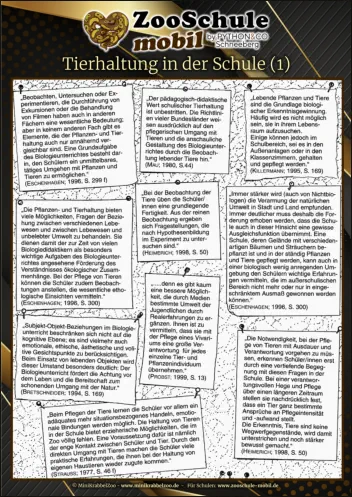 ZooSchule
mobil by PYTHON&CO
Schneeberg
Tierhaltung in der Schule (1)
"Beobachten, Untersuchen oder Ex-
perimentieren, die Durchführung von
Exkursionen oder die Behandlung
von Filmen haben auch in anderen
Fächern eine wesentliche Bedeutung;
aber in keinem andern Fach gibt es
Elemente, die der Pflanzen- und Tier-
haltung auch nur annähernd ver-
gleichbar sind. Eine Grundaufgabe
des Biologieunterrichtes besteht dar-
in, den Schülern ein unmittelbares,
tätiges Umgehen mit Pflanzen und
Tieren zu ermöglichen."
(ESCHENHAGEN, 1996, S. 299 f)
"Der pädagogisch-didaktische
Wert schulischer Tierhaltung
ist unbestritten. Die Richtlini-
en vieler Bundesländer wei-
sen ausdrücklich auf den
pflegerischen Umgang mit
Tieren und die anschauliche
Gestaltung des Biologieunter-
richtes durch die Beobach-
tung lebender Tiere hin."
(MAU, 1980, S.44)
"Lebende Pflanzen und Tiere
sind die Grundlage biologi-
scher Erkenntnisgewinnung.
Häufig wird es nicht möglich
sein, sie in ihrem Lebens-
raum aufzusuchen.
Einige können jedoch im
Schulbereich, sei es in den
Außenanlagen oder in den
Klassenzimmern, gehalten
und gepflegt werden."
(KILLERMANN; 1995, S. 169)
"Die Pflanzen- und Tierhaltung bieten
viele Möglichkeiten, Fragen der Bezie-
hung zwischen verschiedenen Lebe-
wesen und zwischen Lebewesen und
unbelebter Umwelt zu behandeln. Sie
dienen damit der zur Zeit von vielen
Biologiedidaktikern als besonders
wichtige Aufgabe des Biologieunter-
richtes angesehene Förderung des
Verständnisses biologischer Zusam-
menhänge. Bei der Pflege von Tieren
können die Schüler zudem Beobach-
tungen anstellen, die wesentliche etho-
logische Einsichten vermitteln."
(ESCHENHAGEN, 1998, S. 300)
"Bei der Beobachtung der
Tiere üben die Schüler/
innen eine grundlegende
Fertigkeit. Aus der reinen
Beobachtung ergeben
sich Fragestellungen, die
nach Hypothesenbildung
im Experiment zu unter-
suchen sind."
(HEIMERICH; 1998, S. 50)
"Immer stärker wird (auch von Nichtbio-
logen) die Verarmung der natürlichen
Umwelt in Stadt und Land empfunden.
Immer deutlicher muss deshalb die For-
derung erhoben werden, dass die Schu-
le auch in dieser Hinsicht eine gewisse
Ausgleichsfunktion übernimmt. Eine
Schule, deren Gelände mit verschieden-
artigen Bäumen und Sträuchern be-
pflanzt ist und in der ständig Pflanzen
und Tiere gepflegt werden, kann auch in
einer biologisch wenig anregenden Um-
gebung den Schülern wichtige Erfahrun-
gen vermitteln, die im außerschulischen
Bereich nicht mehr oder nur in einge-
schränktem Ausmaß gewonnen werden
können."
(ESCHENHAGEN, 1998, S. 300)
"Subjekt-Objekt-Beziehungen im Biologie-
unterricht beschränken sich nicht auf die
kognitive Ebene; es sind vielmehr auch
emotionale, ethische, ästhetische und voli-
tive Gesichtspunkte zu berücksichtigen.
Beim Einsatz von lebenden Objekten wird
dieser Umstand besonders deutlich: Der
Biologieunterricht fördert die Achtung vor
dem Leben und die Bereitschaft zum
schonenden Umgang mit der Natur."
(BRETSCHNEIDER; 1994, S. 169)
"......denn es gibt kaum
eine bessere Möglich-
keit, die durch Medien
bestimmte Umwelt der
Jugendlichen durch
Realerfahrungen zu er-
gänzen. Ihnen ist zu
vermitteln, dass sie mit
der Pflege eines Vivari-
ums eine große Ver-
antwortung für jedes
einzelne Tier- und
Pflanzenindividuum
übernehmen."
(PROBST; 1999, S. 13)
"Die Notwendigkeit, bei der Pfle-
ge von Tieren mit Ausdauer und
Verantwortung vorgehen zu müs-
sen, erkennen Schüler/innen erst
durch eine vertiefende Begeg-
nung mit diesen Fragen in der
Schule. Bei einer verantwor-
tungsvollen Hege und Pflege
über einen längeren Zeitraum
stellen sie nachdrücklich fest,
dass ein Tier ganz bestimmte
Ansprüche an Pflegeintensität
und -aufwand stellt.
Die Erkenntnis, Tiere sind keine
Wegwerfgegenstände, wird damit
unterstrichen und noch stärker
bewusst gemacht."
(HEIMERICH; 1998, S. 50)
"Beim Pflegen der Tiere lernen die Schüler vor allem ein
adäquates mehr situationsbezogenes Handeln, emotio-
nale Bindungen werden möglich. Die Haltung von Tieren
in der Schule bietet erzieherische Möglichkeiten, die im
Zoo völlig fehlen. Eine Voraussetzung dafür ist nämlich
der enge Kontakt zwischen Schüler und Tier. Durch den
direkten Umgang mit Tieren machen die Schüler viele
praktische Erfahrungen, die ihnen bei der Haltung von
eigenen Haustieren wieder zugute kommen."
(STRAUSS; 1977, S. 46 f)
© MiniKrabbelZoo - www.minikrabbelzoo.de - Für Schulen: www.zooschule-mobil.de